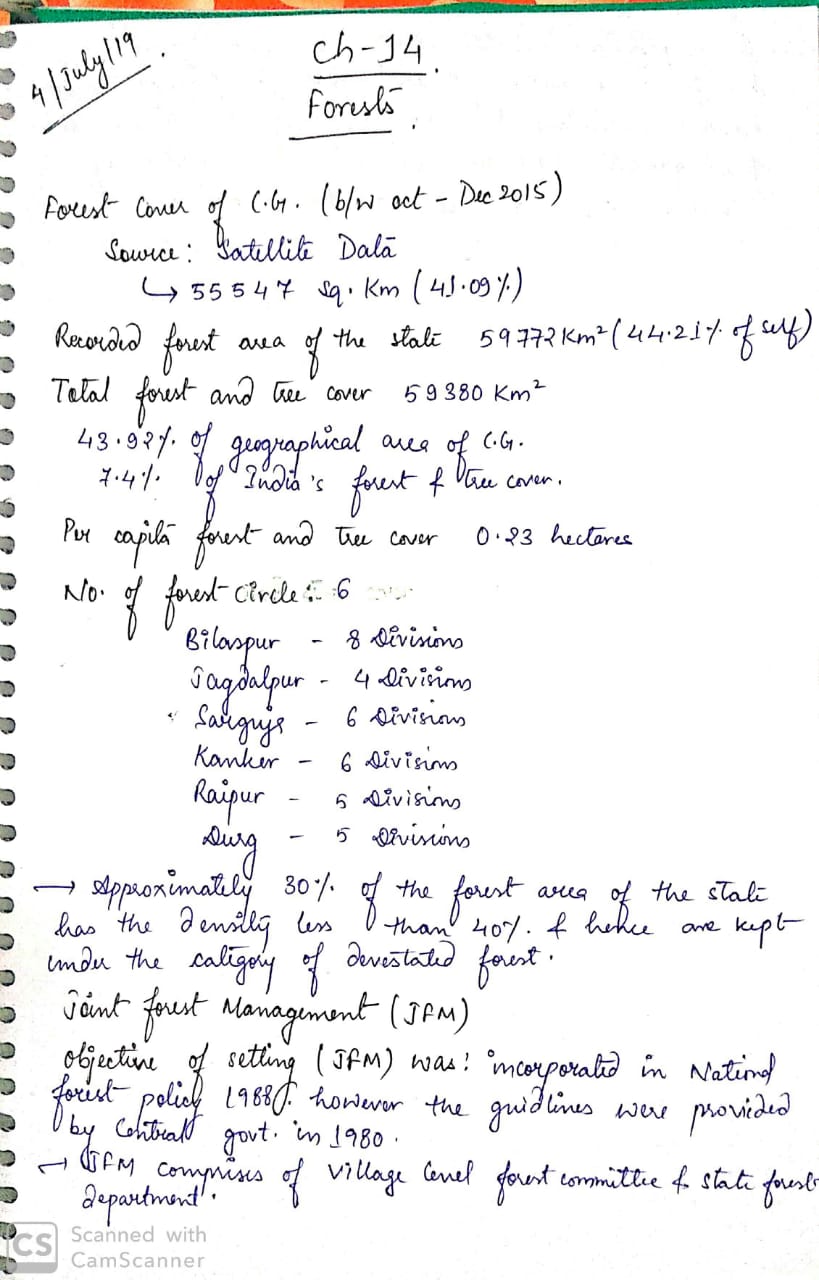 4/July/19.
Ch-14.
Forests.
Forest Cover of C.G. (b/w oct - Dec 2015)
Source: Satellite Data
↳ 55547 sq. Km (41.09%)
Recorded forest area of the state 59772 Km² (44.21% of self)
Total forest and tree cover 59380 Km²
43.92% of geographical area of C.G.
7.4% of India's forest & tree cover.
Per capita forest and Tree cover 0.23 hectares
No. of forest circle: 6
Bilaspur - 8 Divisions
Jagdalpur - 4 Divisions
Sarguja - 6 Divisions
Kanker - 6 Divisions
Raipur - 5 Divisions
Durg - 5 Divisions
→ Approximately 30% of the forest area of the state
has the density less than 40% & hence are kept
under the category of devestated forest.
Joint forest Management (JFM)
objective of setting (JFM) was: incorporated in National
forest policy 1988. however the guidlines were provided
by Central govt. in 1980.
→ JFM comprises of village level forest committee & state forest
department.
CS Scanned with
CamScanner